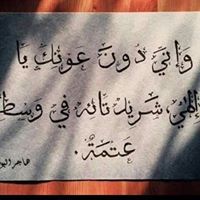 وَإنّي دُونَ عَونِكَ يَا
إلٰهي شَريدٌ تائهٌ في وسطِ
عَتمَةٌ .